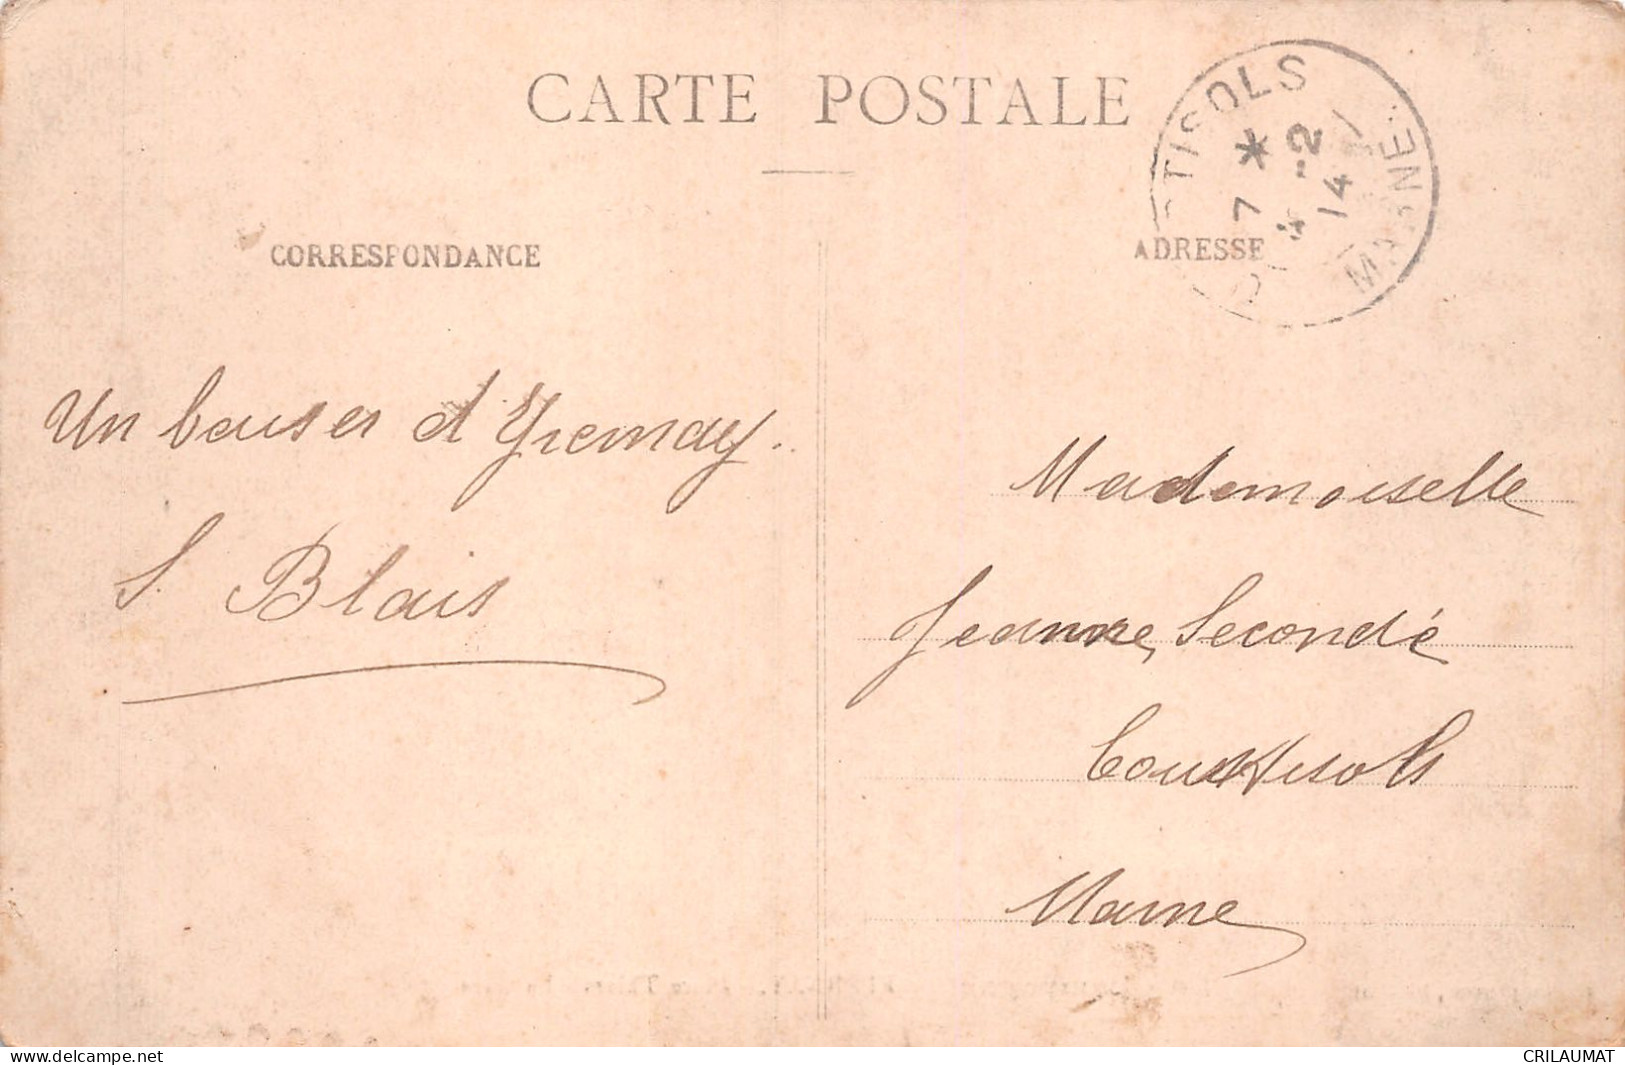 CARTE POSTALE
TISOLS
7 * -2
14
MARNE
CORRESPONDANCE
ADRESSE
Un bauser d'Yremay.
S. Blais
Mademoiselle
Jeanne Secondé
Courtisols
Marne
www.delcampe.net
CRILAUMAT